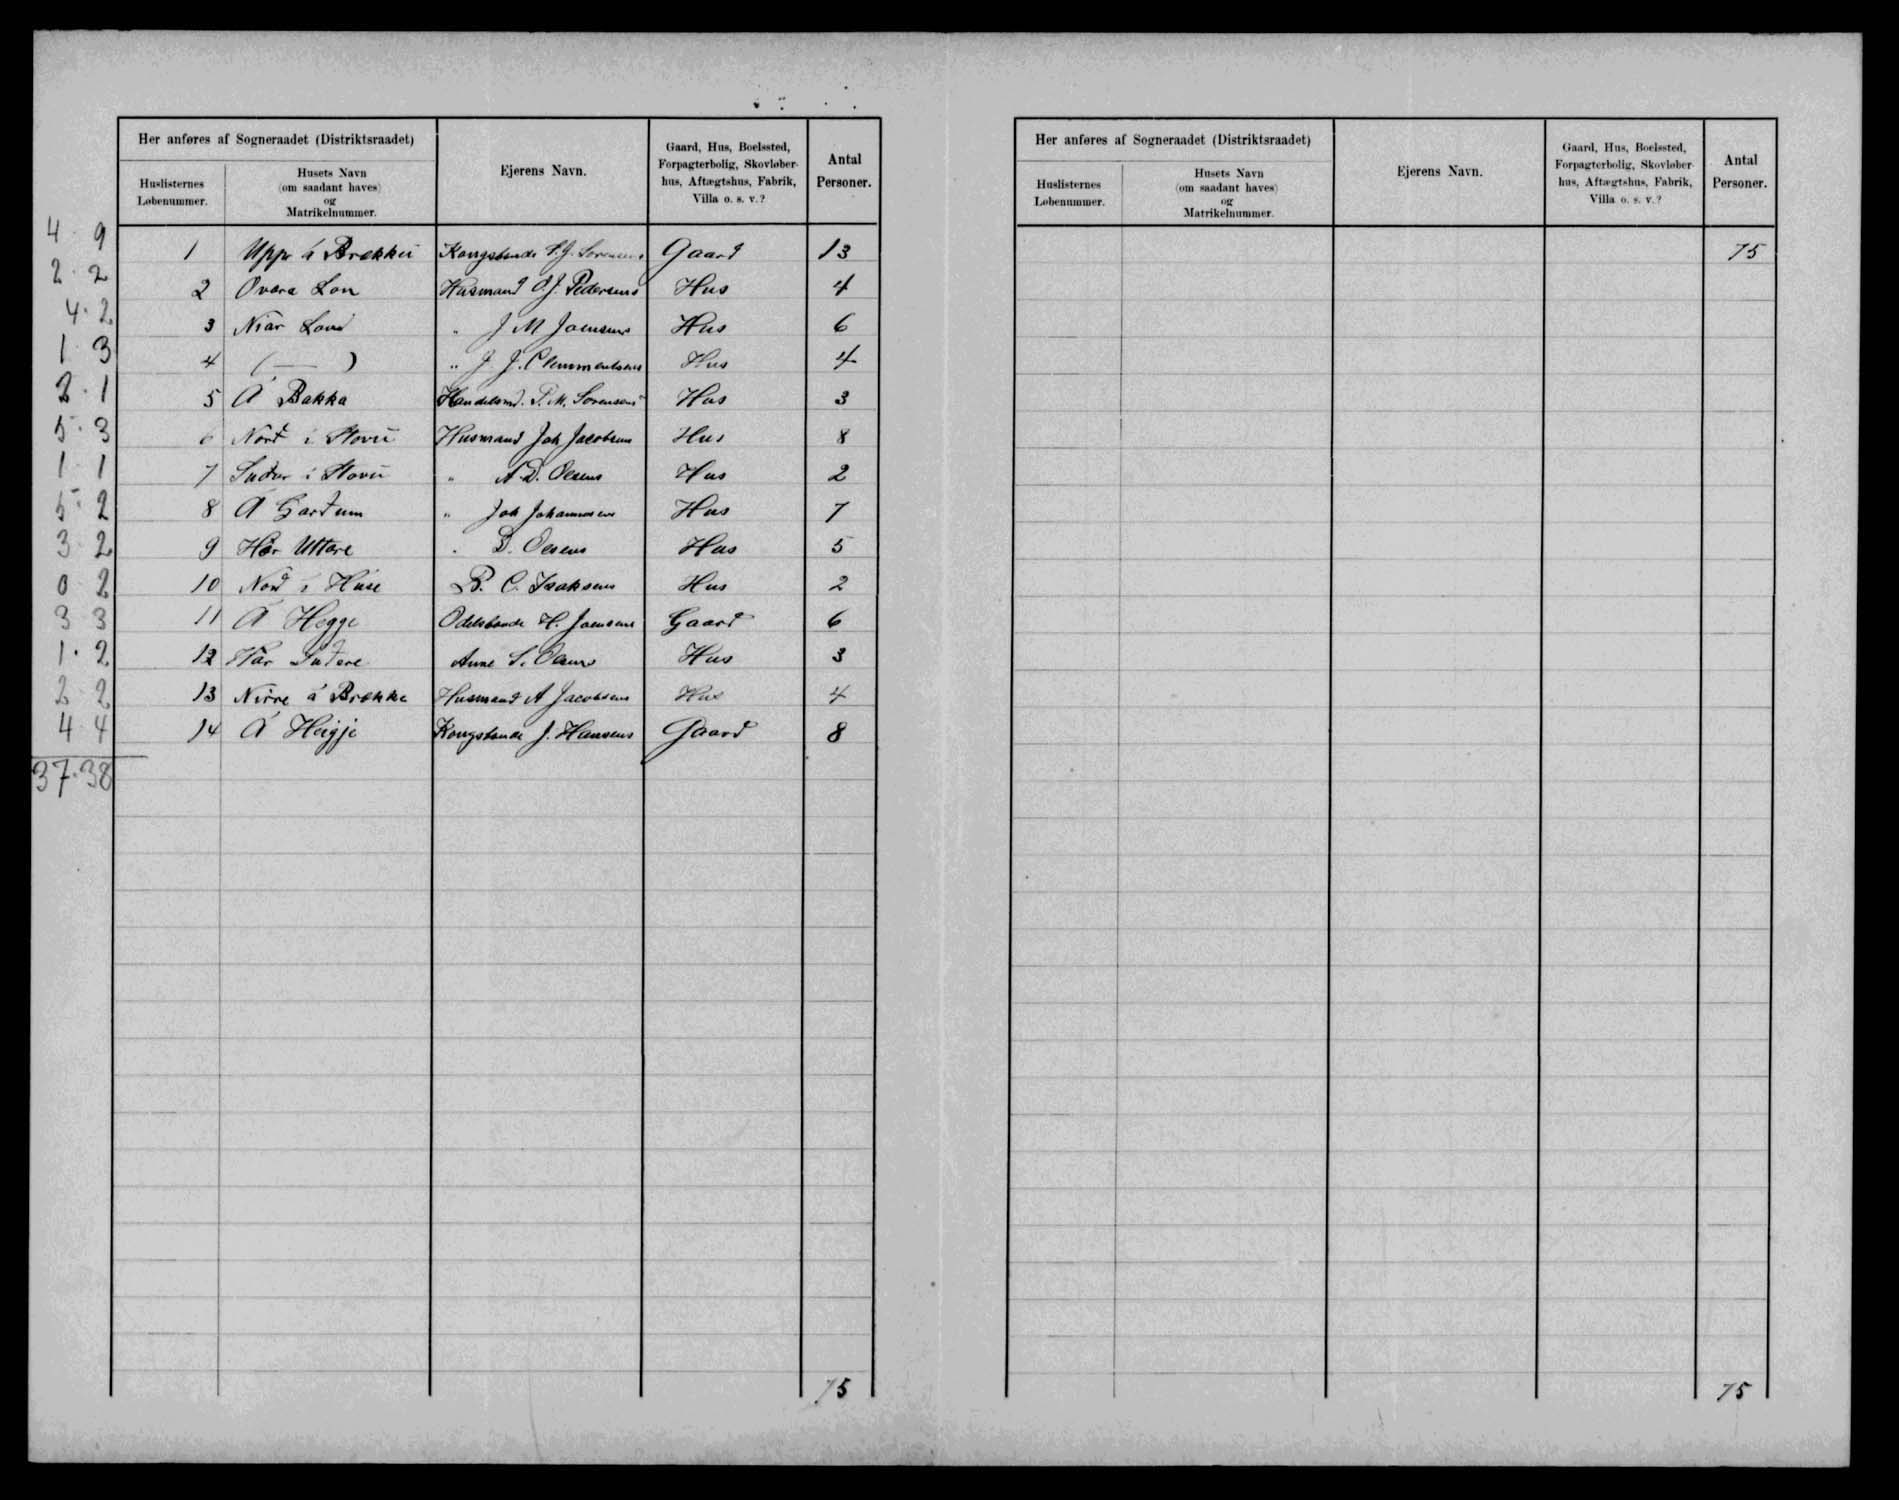 Her anføres af Sogneraadet (Distriktsraadet)
Huslisternes Løbenummer.
Husets Navn (om saadant haves) og Matrikelnummer.
Ejerens Navn.
Gaard, Hus, Boelssted, Forpagterbolig, Skovløberhus, Aftægtshus, Fabrik, Villa o. s. v.?
Antal Personer.
4 9 1 Uppi á Brekku Kongsbonde S. J. Sorensens Gaard 13
2 2 2 Ovara Lon Husmand O J. Pedersens Hus 4
4 2 3 Niar Lond " J M Joensens Hus 6
1 3 4 ( — ) " J. J. Clemmentsens Hus 4
2 1 5 Á Bakka Handelsmd. P. M. Sorensens Hus 3
5 3 6 Nord i Stovu Husmand Joh Jacobsens Hus 8
1 1 7 Sudur i Stovu " A. D. Olsens Hus 2
5 2 8 Á Gardum " Joh Johannesens Hus 7
3 2 9 Har Uttare " D. Olsens Hus 5
0 2 10 Nord i Huse B. C. Isaksens Hus 2
3 3 11 Á Hegge Odelsbonde H. Joensens Gaard 6
1 2 12 Har Sudere Anne S. Olsens Hus 3
2 2 13 Nirre á Brekke Husmand A Jacobsens Hus 4
4 4 14 Á Heigje Kongsbonde J. Hansens Gaard 8
37 38
75
Her anføres af Sogneraadet (Distriktsraadet)
Huslisternes Løbenummer.
Husets Navn (om saadant haves) og Matrikelnummer.
Ejerens Navn.
Gaard, Hus, Boelssted, Forpagterbolig, Skovløberhus, Aftægtshus, Fabrik, Villa o. s. v.?
Antal Personer.
75
75